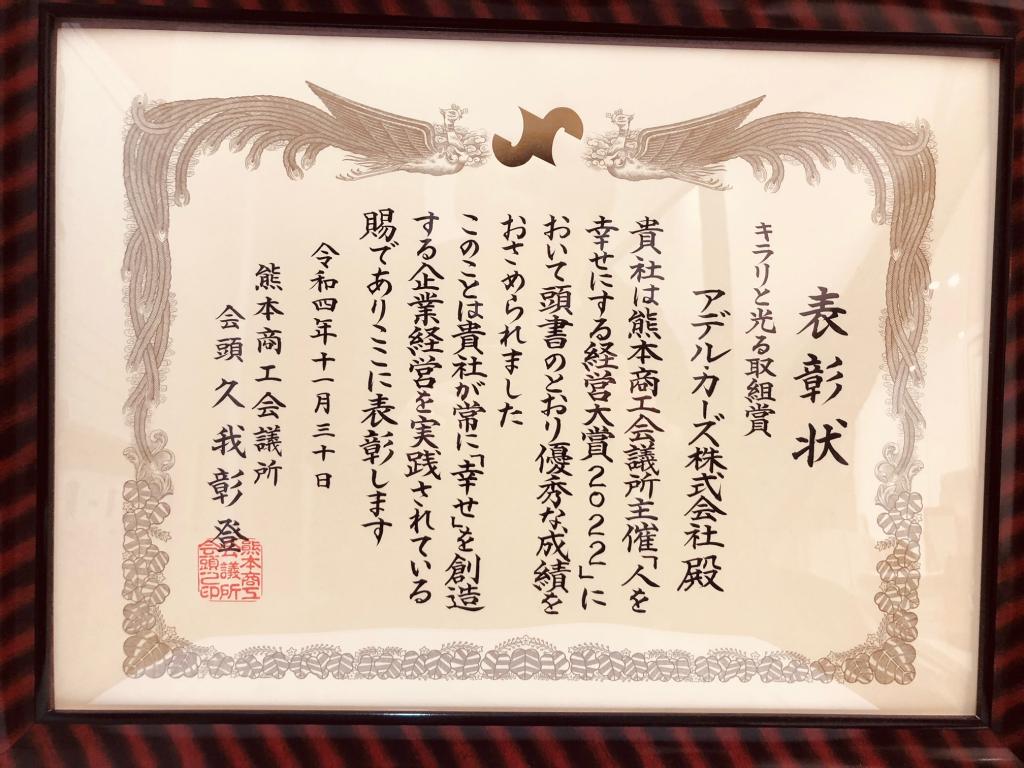 表彰状
キラリと光る取組賞
アデル・カーズ株式会社殿
貴社は熊本商工会議所主催「人を
幸せにする経営大賞2022」に
おいて頭書のとおり優秀な成績を
おさめられました
このことは貴社が常に「幸せ」を創造
する企業経営を実践されている
賜でありここに表彰します
令和四年十一月三十日
熊本商工会議所
会頭久我彰登
熊本商工
会議所
会頭之印